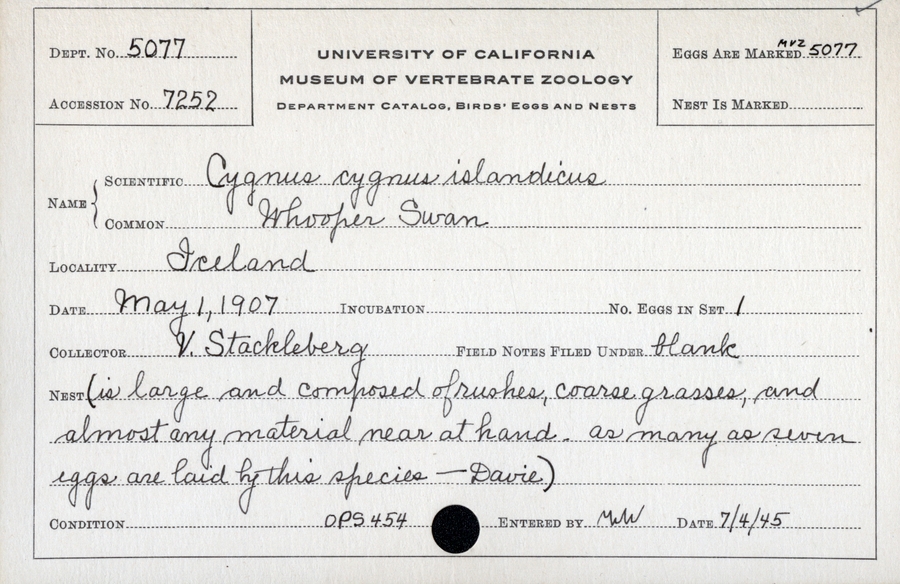 DEPT. NO. 5077
ACCESSION NO. 7252
UNIVERSITY OF CALIFORNIA
MUSEUM OF VERTEBRATE ZOOLOGY
DEPARTMENT CATALOG, BIRDS' EGGS AND NESTS
EGGS ARE MARKED MVZ 5077
NEST IS MARKED
NAME
SCIENTIFIC Cygnus cygnus islandicus
COMMON Whooper Swan
LOCALITY Iceland
DATE May 1, 1907 INCUBATION NO. EGGS IN SET 1
COLLECTOR V. Stackleberg FIELD NOTES FILED UNDER blank
NEST (is large and composed of rushes, coarse grasses, and
almost any material near at hand. as many as seven
eggs are laid by this species — Davie)
CONDITION OPS 454 ENTERED BY DATE 7/4/45